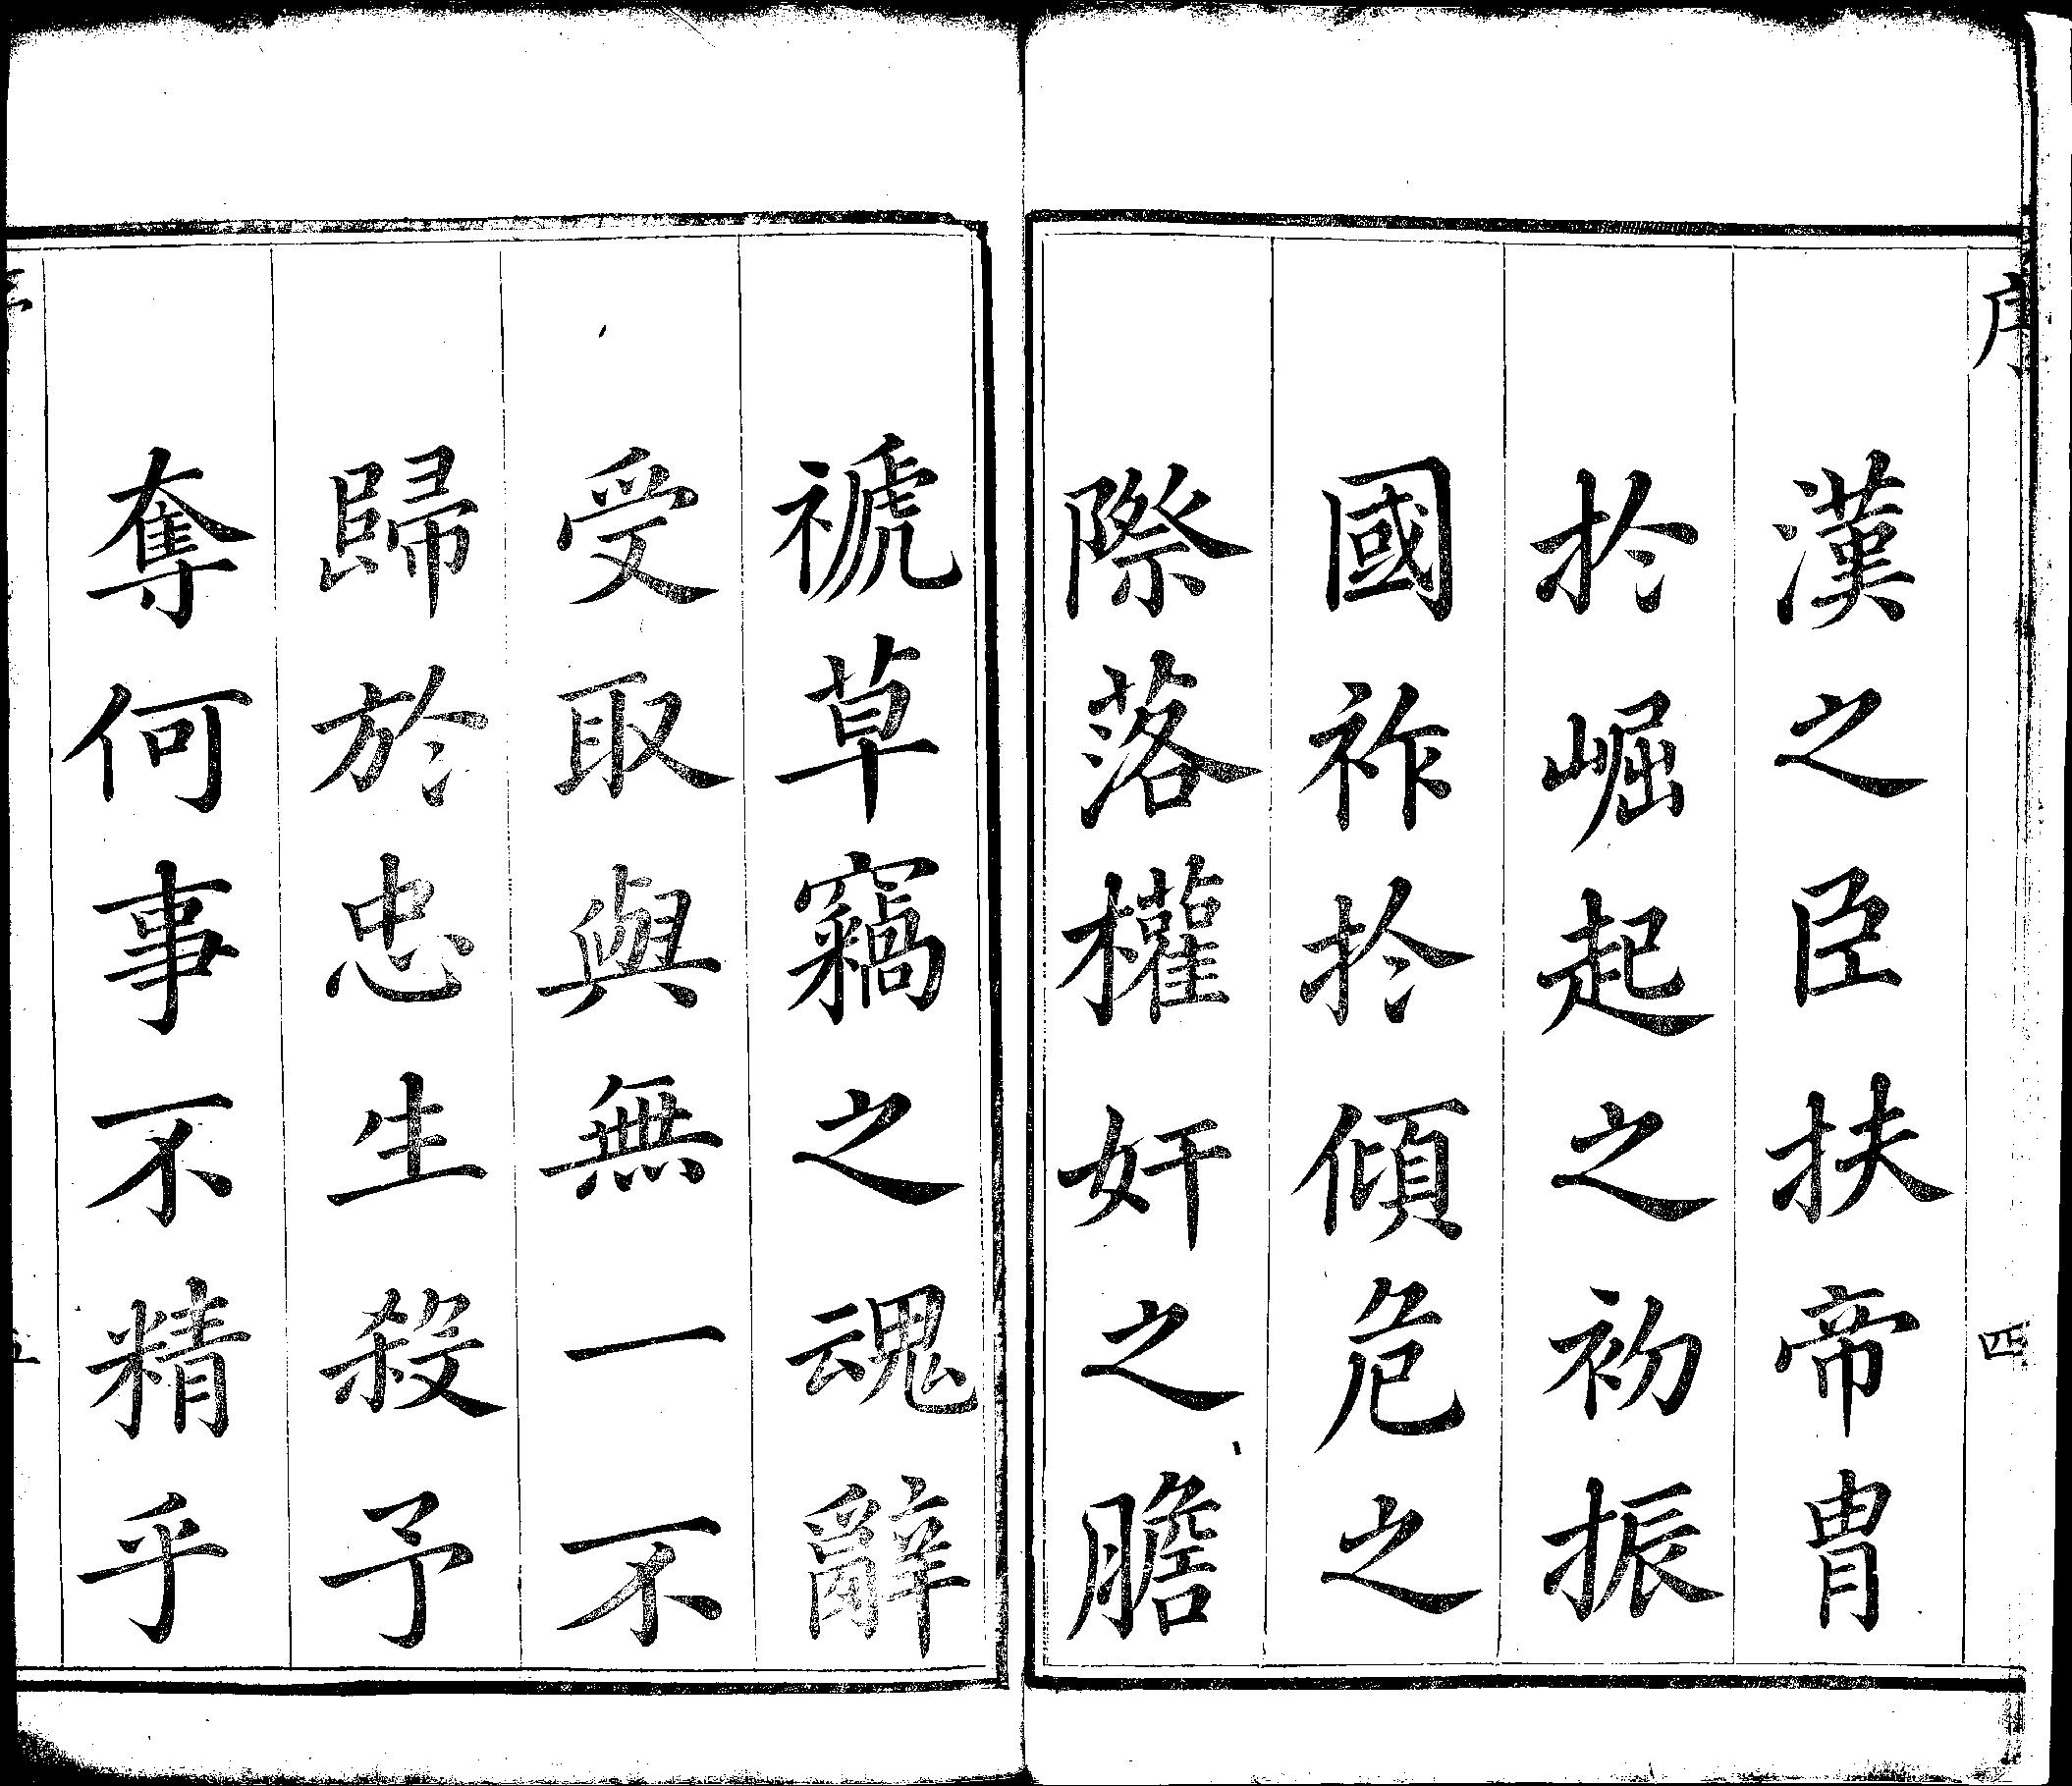 序
四
漢之臣扶帝胄
扵崛起之初振
國祚扵傾危之
際落權奸之膽
禠草竊之魂辭
受取與無一不
歸於忠生殺予
奪何事不精乎